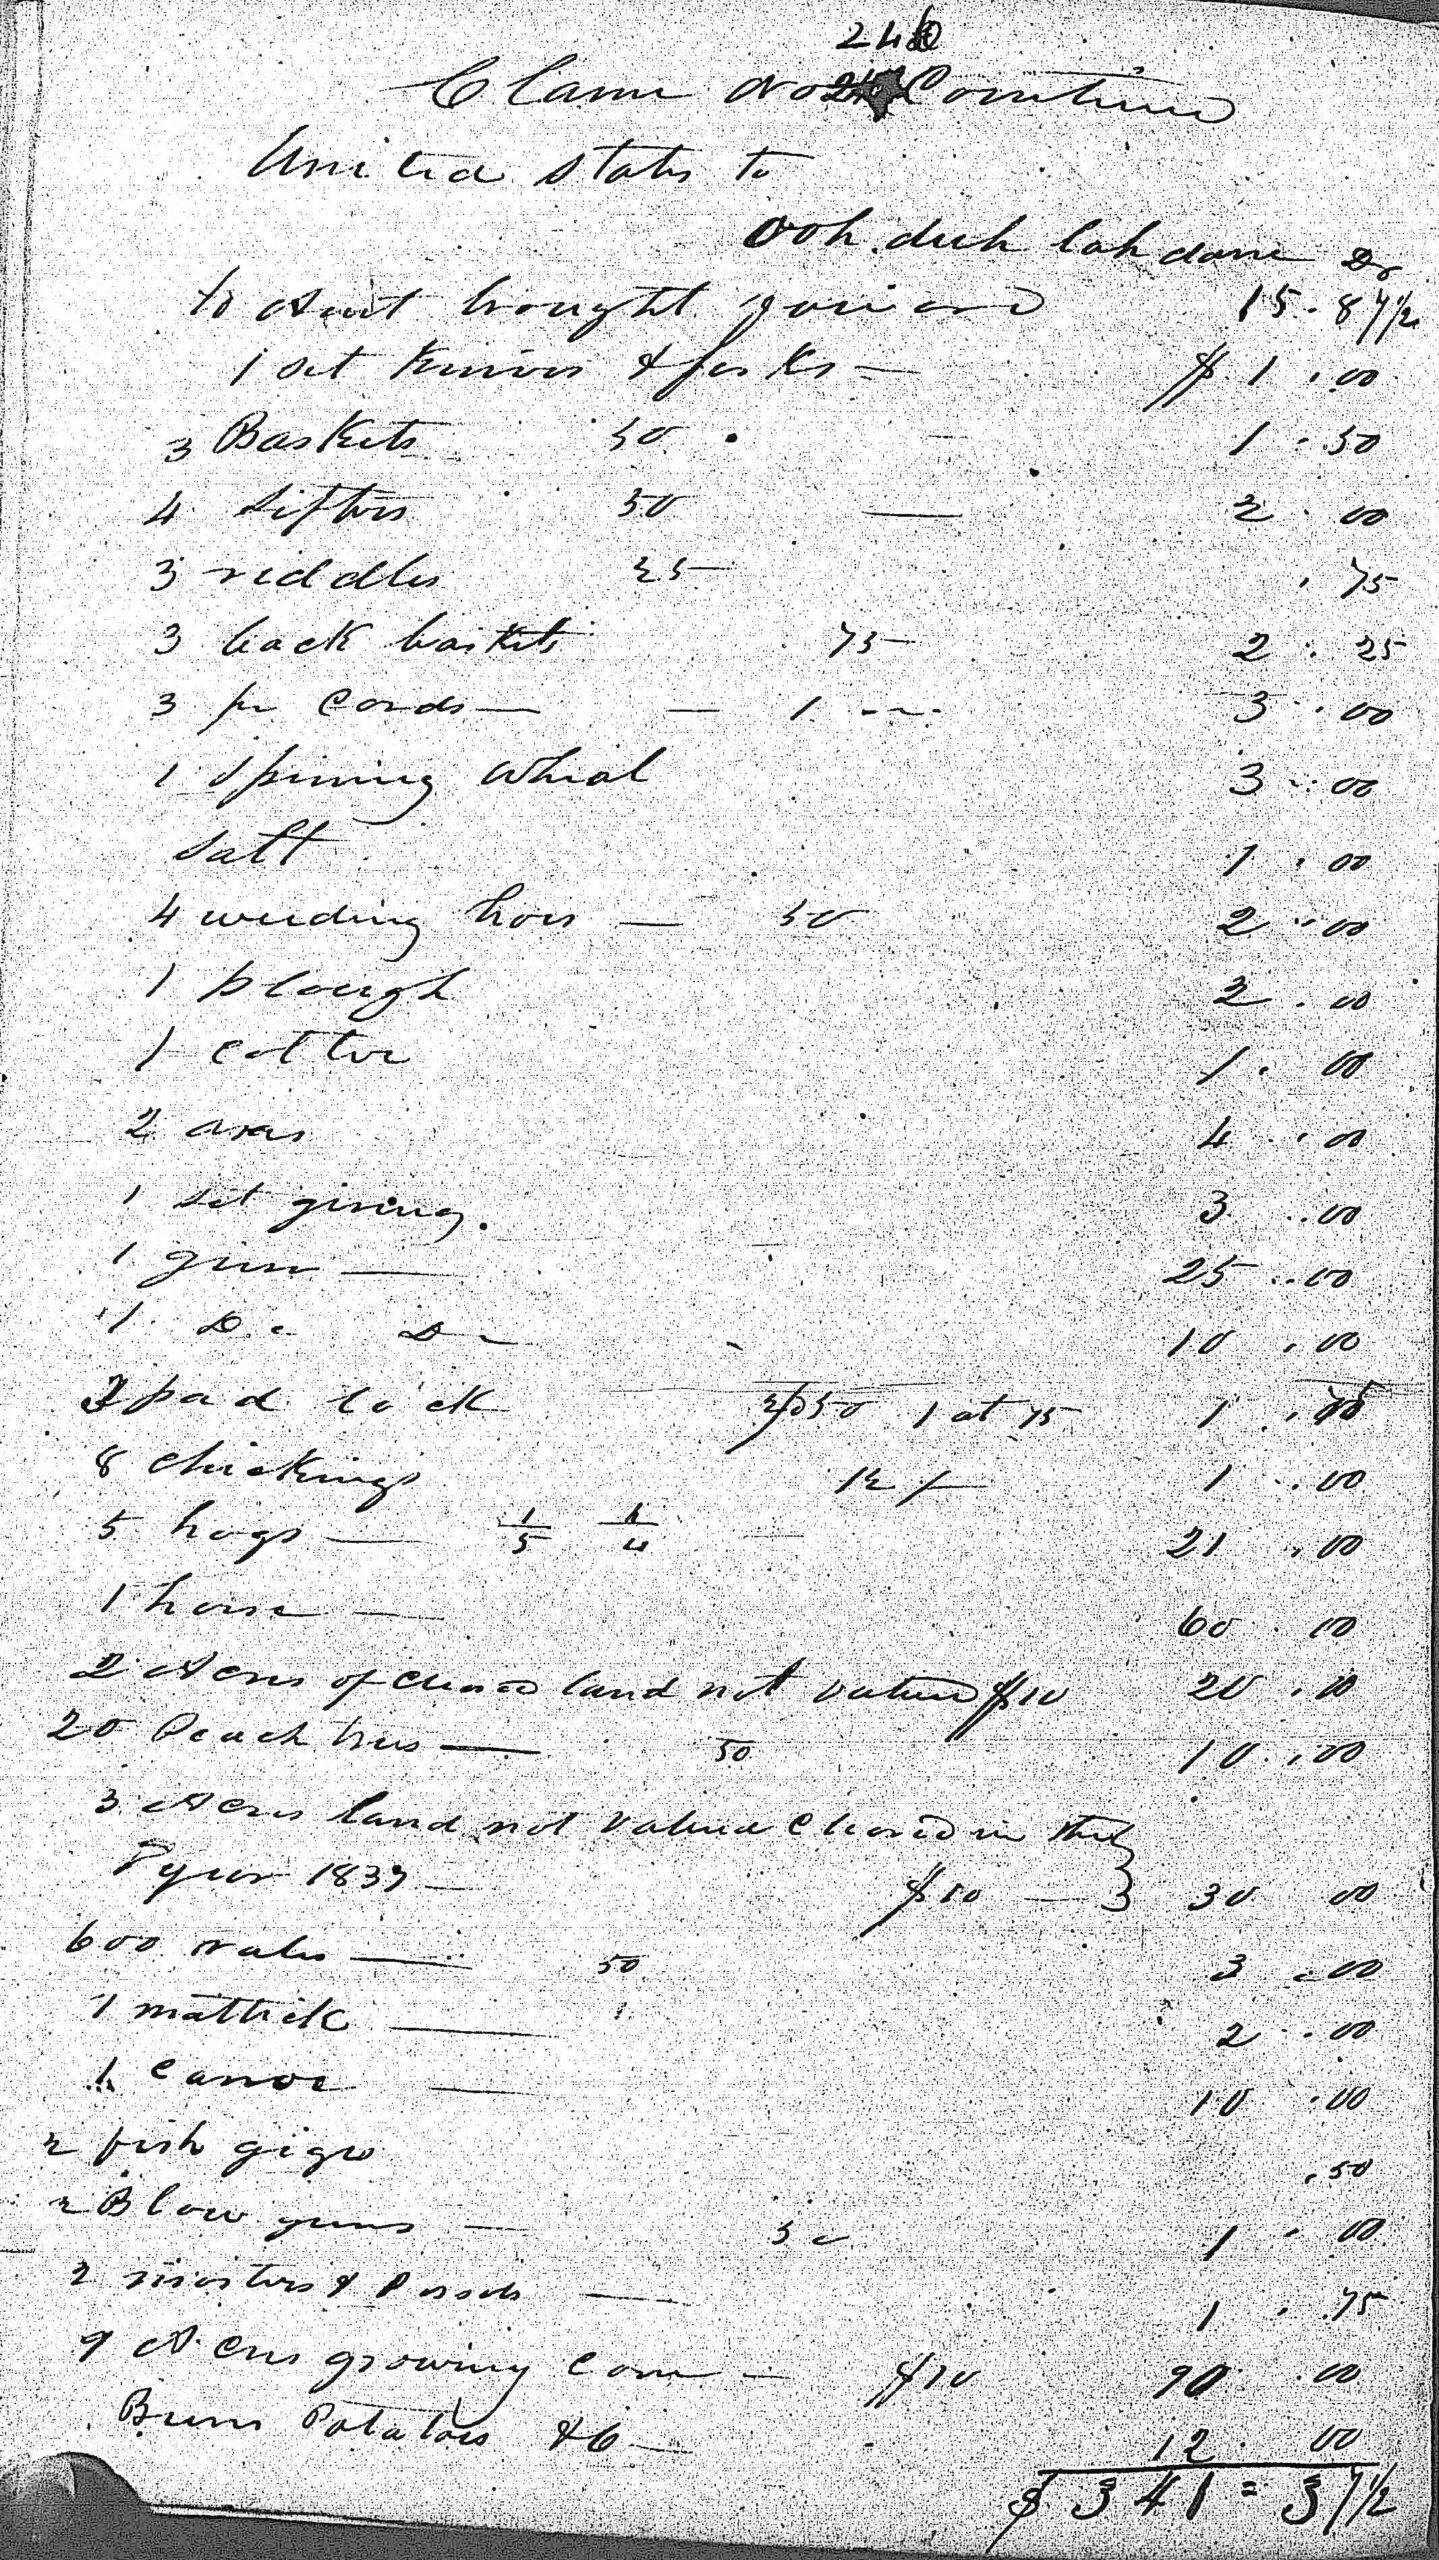 240
Claim No 240 Continued
United States to
Ooh. duh lah dame Dr
to Amt brought forward 15.87 1/2
1 set Knives & forks — $ 1.00
3 Baskets 50 1.50
4 Sifters 50 — 2.00
3 riddles 25 .75
3 back baskets 75 2.25
3 pr Cords — — 1 3.00
1 Spinning Wheal 3.00
Salt 1.00
4 weeding hoes — 50 2.00
1 plough 2.00
1 colter 1.00
2 axes 4.00
1 set giring. 3.00
1 gun — 25.00
1 Do Do 10.00
3 pad lock 2/050 1 at 75 1.75
8 Chickings 12 /— 1.00
5 hogs — 1/5 1/4 — 21.00
1 horse — 60.00
2 Acres of Cleared land not valued $10 20.00
20 Peach trees — 50 10.00
3 Acres land not valued Cleared in the
year 1837 — $10 — 30 00
600 rales — 50 3.00
1 mattick — 2.00
1 Canoe — 10.00
2 fish gigs .50
2 Blow guns — 50 1.00
2 & — 1.75
9 Acres growing Corn — $10 90.00
Beens Potatoes &C — 12.00
$ 341 = 37 1/2